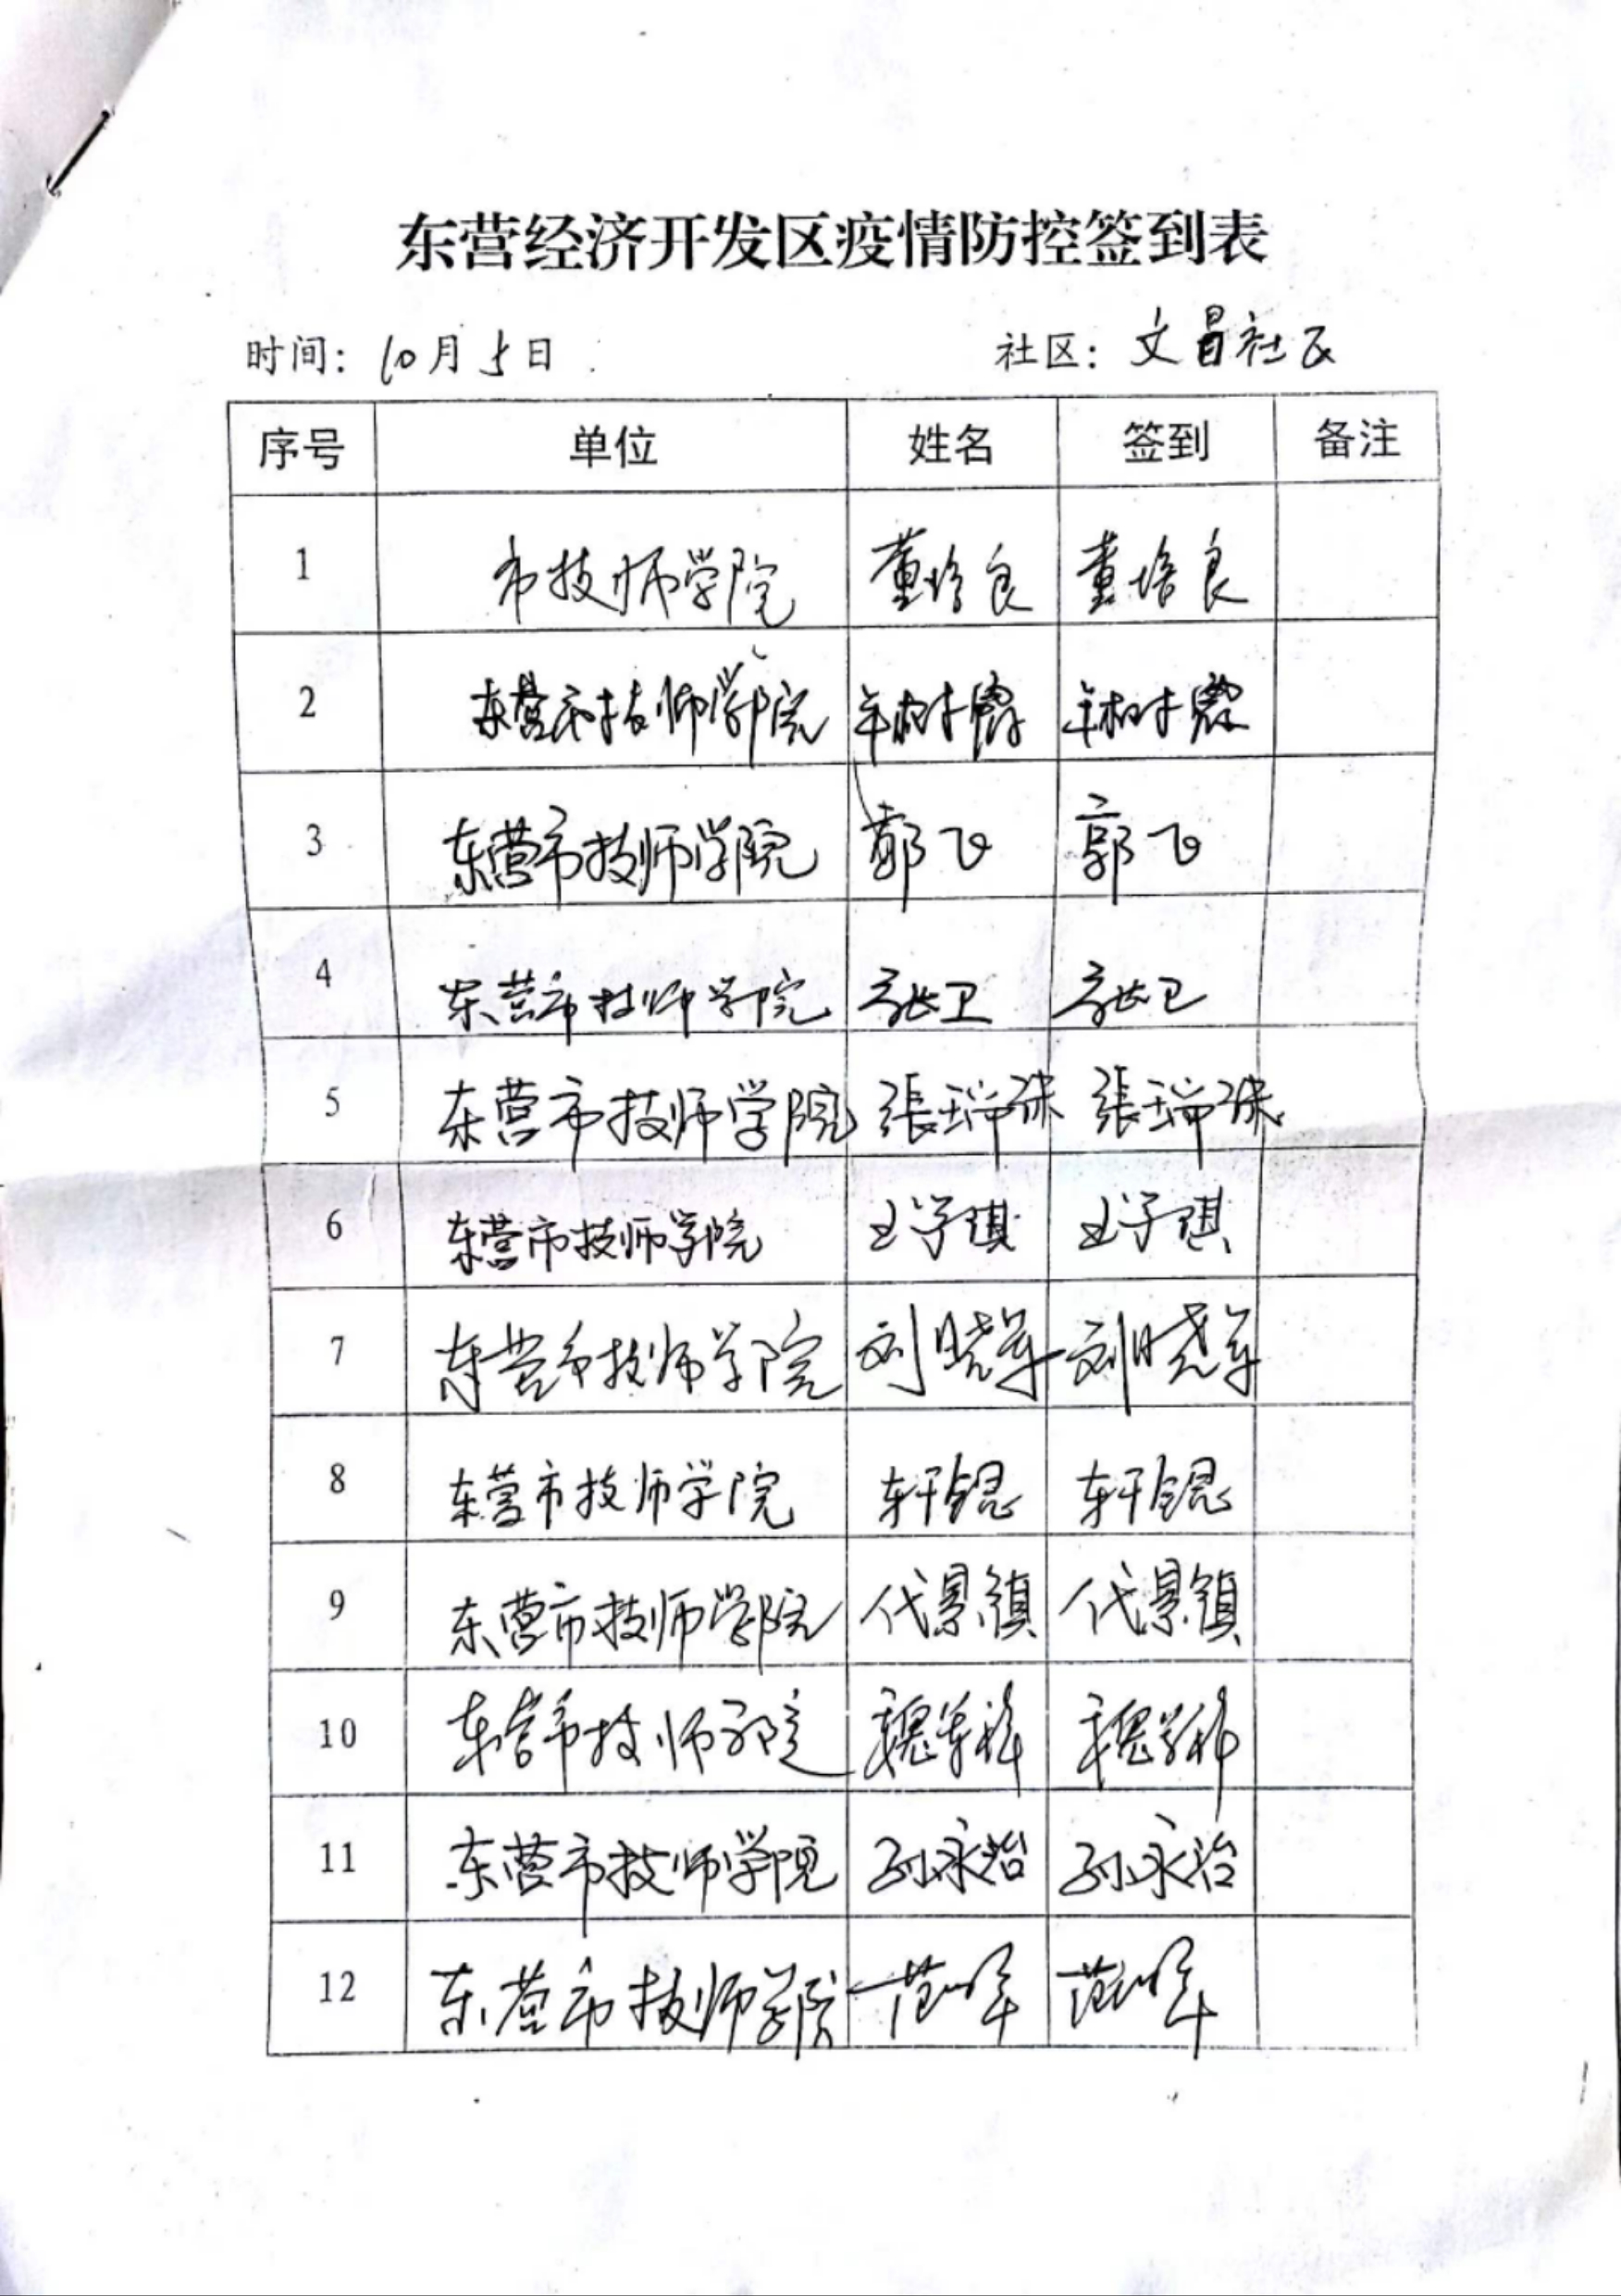 东营经济开发区疫情防控签到表
时间：10月5日 社区：文昌社区
序号 单位 姓名 签到 备注
1 市技师学院 董培良 董培良
2 东营市技师学院 年树霖 年树霖
3 东营市技师学院 郭飞 郭飞
4 东营市技师学院 张卫 张卫
5 东营市技师学院 張瑞珠 張瑞珠
6 东营市技师学院 王学琪 王子琪
7 东营市技师学院 刘晓军 刘晓军
8 东营市技师学院 轩锟 轩锟
9 东营市技师学院 代景镇 代景镇
10 东营市技师学院 魏 魏
11 东营市技师学院 孙永治 孙永治
12 东营市技师学院 范 范